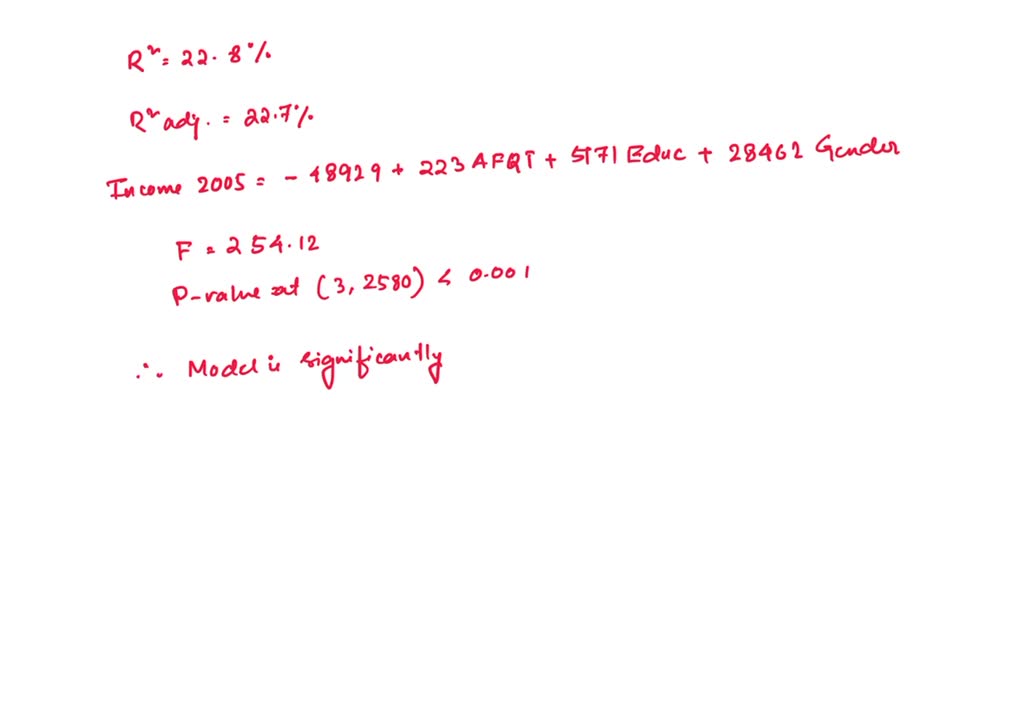 R² = 22.8%
R² adj. = 22.7%
Income 2005 = - 48929 + 223 AFQT + 5171 Educ + 28462 Gender
F = 254.12
P-value at (3, 2580) < 0.001
∴ Model is significantly